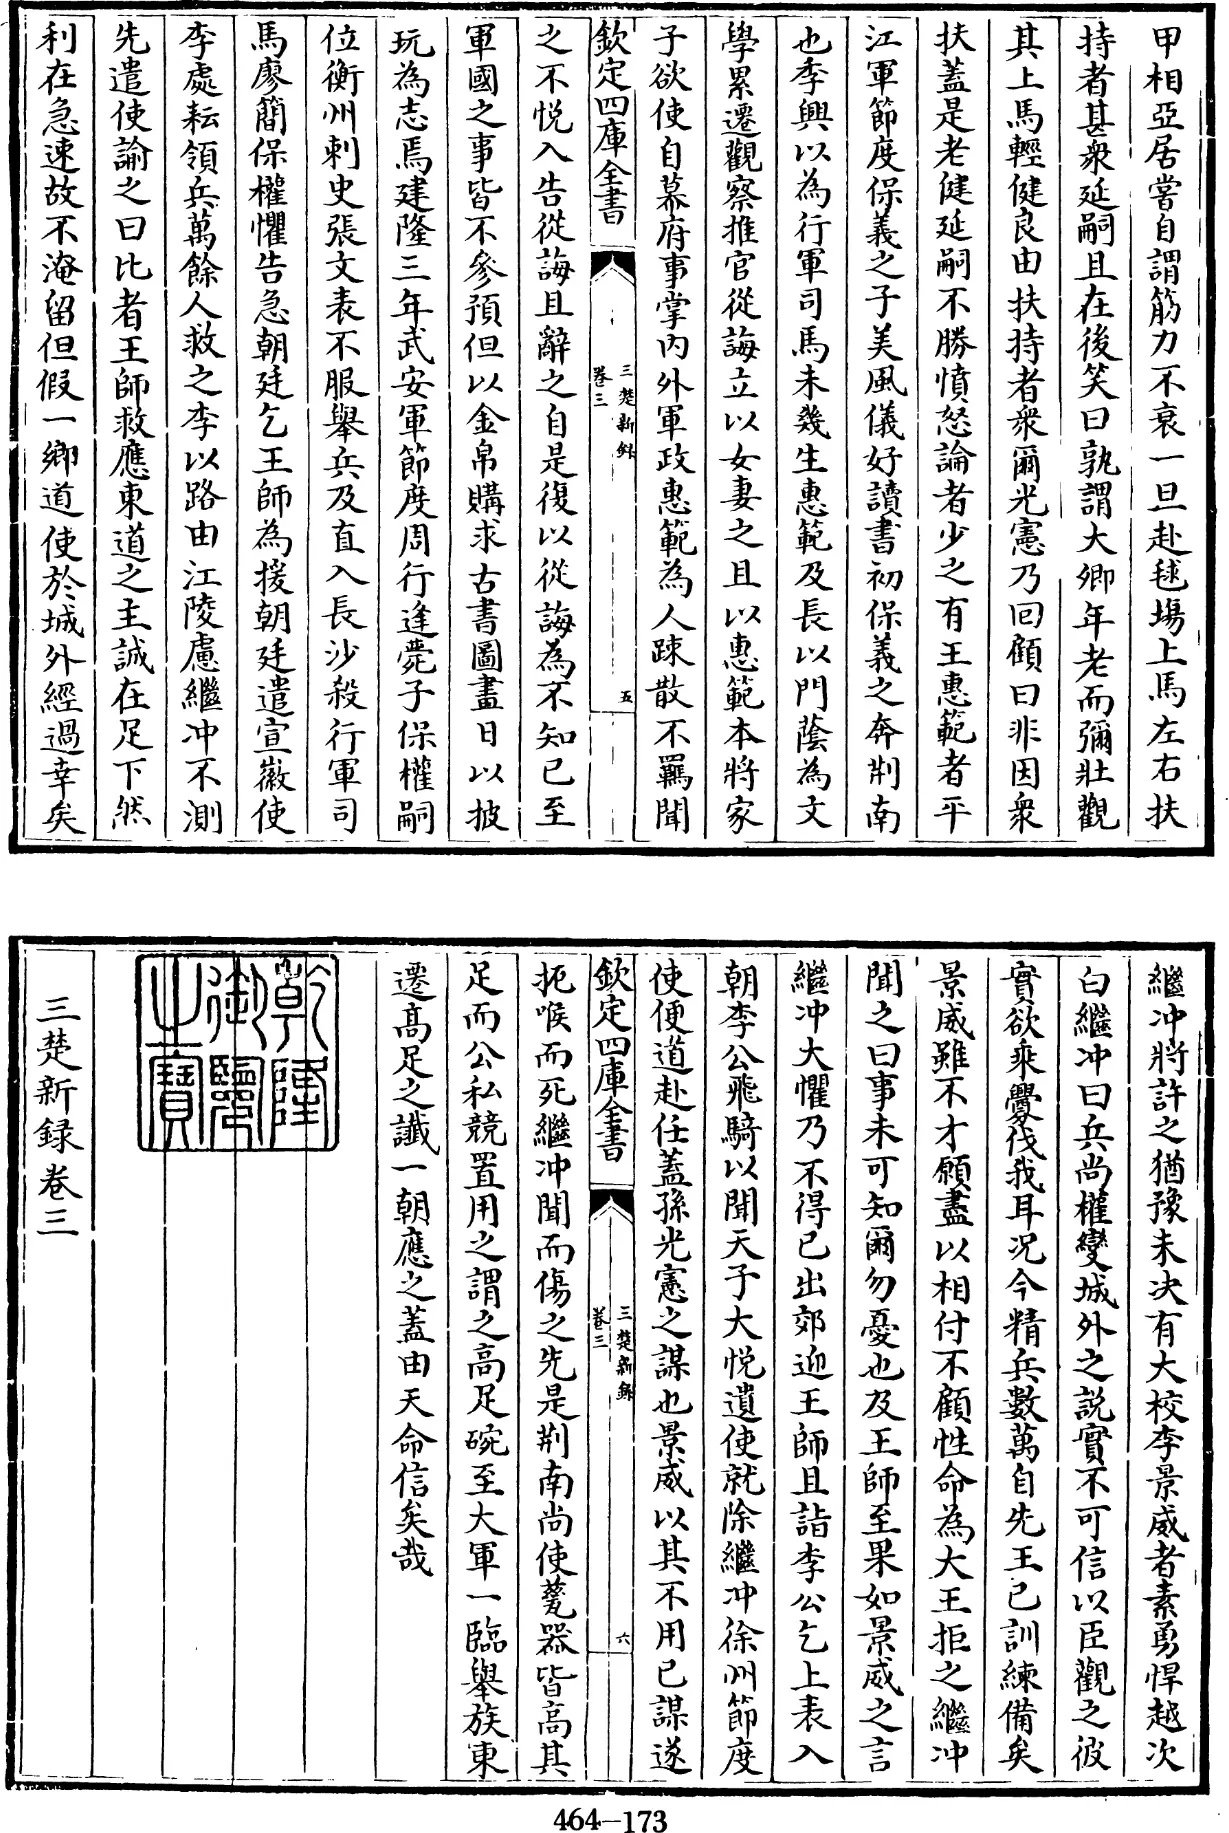 甲相亞居嘗自謂筋力不衰一旦赴毬場上馬左右扶
持者甚衆延嗣且在後笑曰孰謂大卿年老而彌壯觀
其上馬輕健良由扶持者衆爾光憲乃回顧曰非因衆
扶蓋是老健延嗣不勝憤怒論者少之有王惠範者平
江軍節度保義之子美風儀好讀書初保義之奔荆南
也季興以為行軍司馬未幾生惠範及長以門蔭為文
學累遷觀察推官從誨立以女妻之且以惠範本將家
子欲使自幕府事掌内外軍政惠範為人踈散不羈聞
欽定四庫全書
三楚新錄
卷三
五
之不悦入告從誨且辭之自是復以從誨為不知已至
軍國之事皆不參預但以金帛購求古書圖畫日以披
玩為志焉建隆三年武安軍節度周行逢薨子保權嗣
位衡州刺史張文表不服舉兵及直入長沙殺行軍司
馬廖簡保權懼告急朝廷乞王師為援朝廷遣宣徽使
李處耘領兵萬餘人救之李以路由江陵慮繼冲不測
先遣使諭之曰比者王師救應東道之主誠在足下然
利在急速故不淹留但假一鄉道使於城外經過幸矣
繼冲將許之猶豫未决有大校李景威者素勇悍越次
白繼冲曰兵尚權變城外之説實不可信以臣觀之彼
實欲乘釁伐我耳况今精兵數萬自先王已訓練備矣
景威雖不才願盡以相付不顧性命為大王拒之繼冲
聞之曰事未可知爾勿憂也及王師至果如景威之言
繼冲大懼乃不得已出郊迎王師且詣李公乞上表入
朝李公飛騎以聞天子大悦遺使就除繼冲徐州節度
使便道赴任蓋孫光憲之謀也景威以其不用已謀遂
欽定四庫全書
三楚新錄
卷三
六
扼喉而死繼冲聞而傷之先是荆南尚使甆器皆高其
足而公私競置用之謂之高足碗至大軍一臨舉族東
遷高足之讖一朝應之蓋由天命信矣哉
乾隆
御覽
之寶
三楚新録卷三
464—173